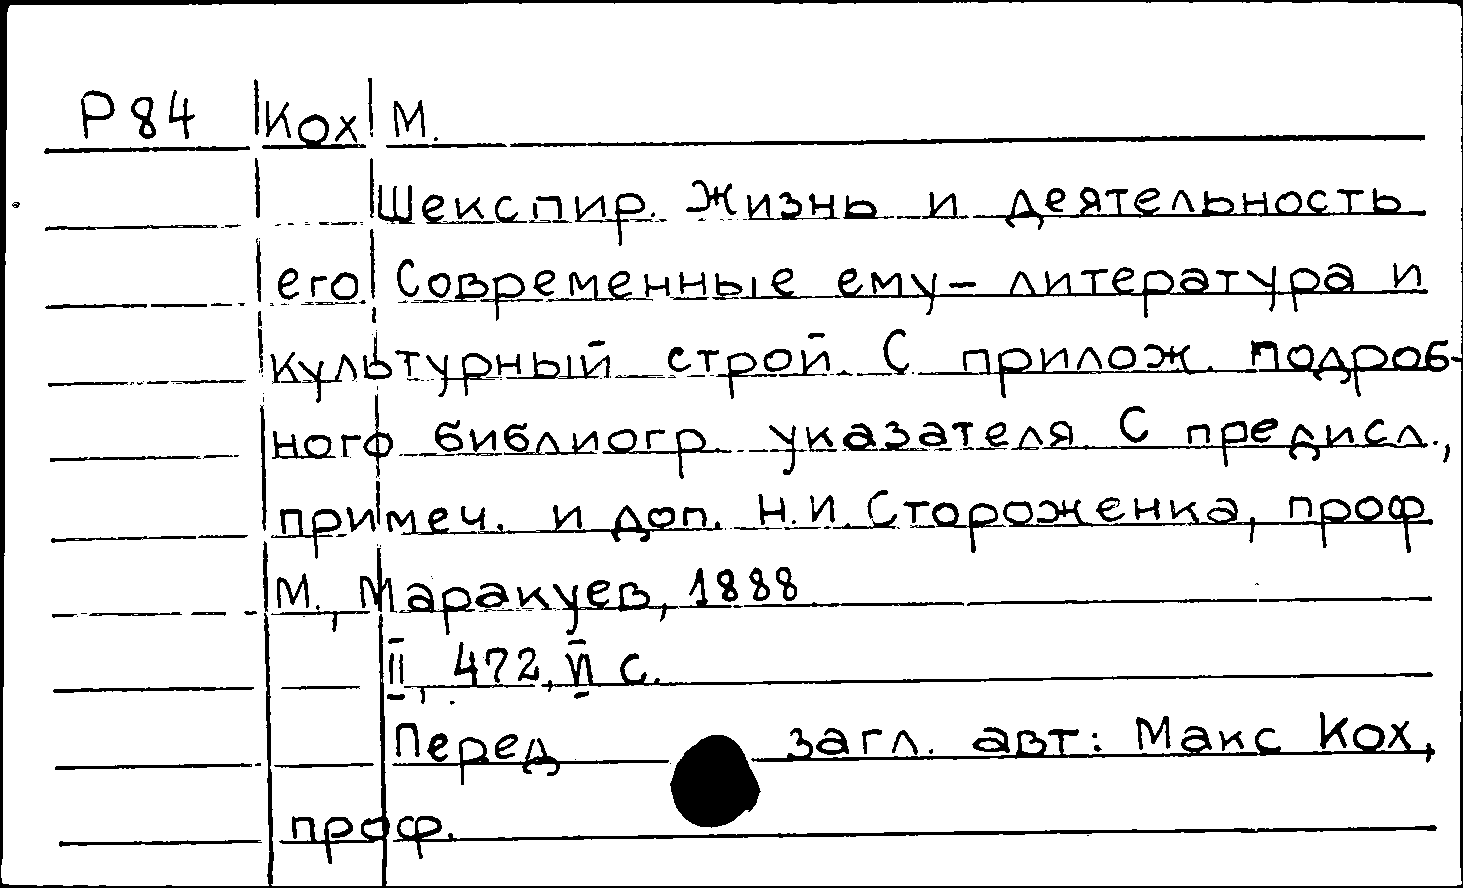 Р84 Кох М.
Шекспир. Жизнь и деятельность
его. Современные ему – литература и
культурный строй. С прилож. подроб-
ного библиогр. указателя. С предисл.,
примеч. и доп. Н.И. Стороженка, проф
М., Маракуев, 1888
II, 472, VI с.
Перед загл. авт: Макс Кох,
проф.